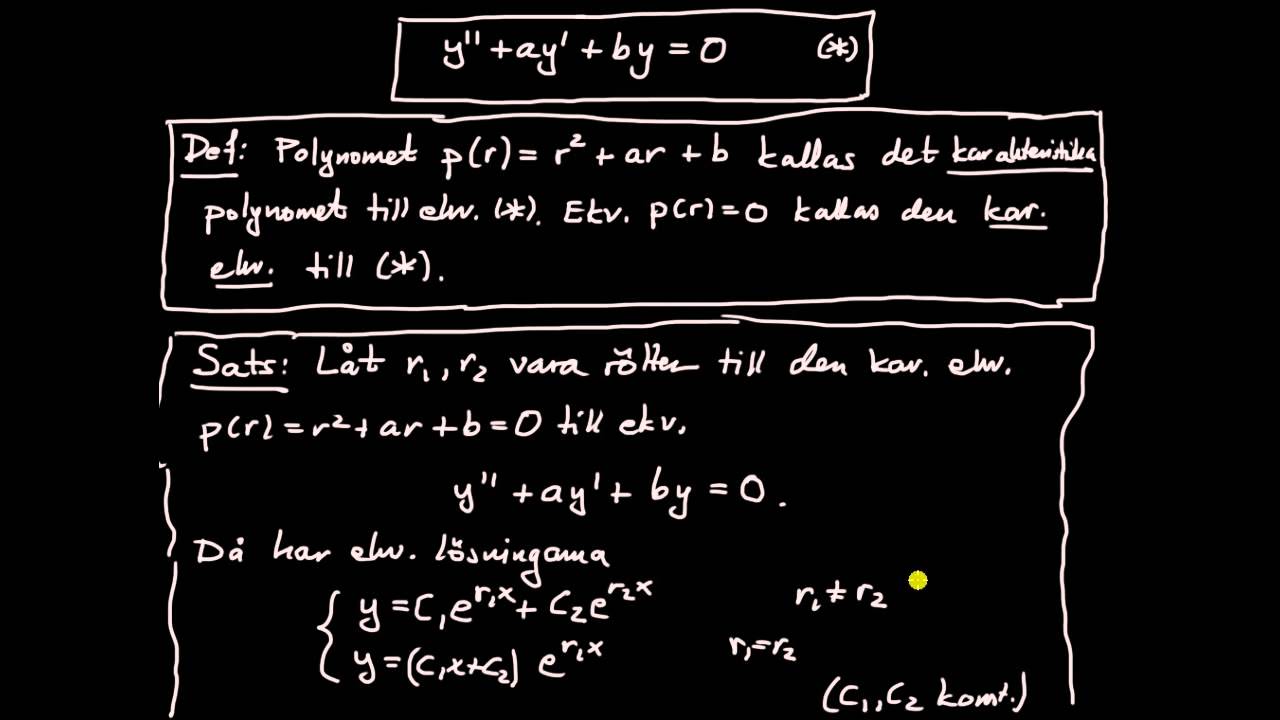 y'' + ay' + by = 0 (*)
Def: Polynomet p(r) = r² + ar + b kallas det karakteristika
polynomet till ekv. (*). Ekv. p(r) = 0 kallas den kar.
ekv. till (*).
Sats: Låt r₁, r₂ vara rötter till den kar. ekv.
p(r) = r² + ar + b = 0 till ekv.
y'' + ay' + by = 0.
Då har ekv. lösningarna
{ y = C₁e^{r₁x} + C₂e^{r₂x} r₁ ≠ r₂
y = (C₁x + C₂) e^{r₁x} r₁ = r₂
(C₁, C₂ konst.)